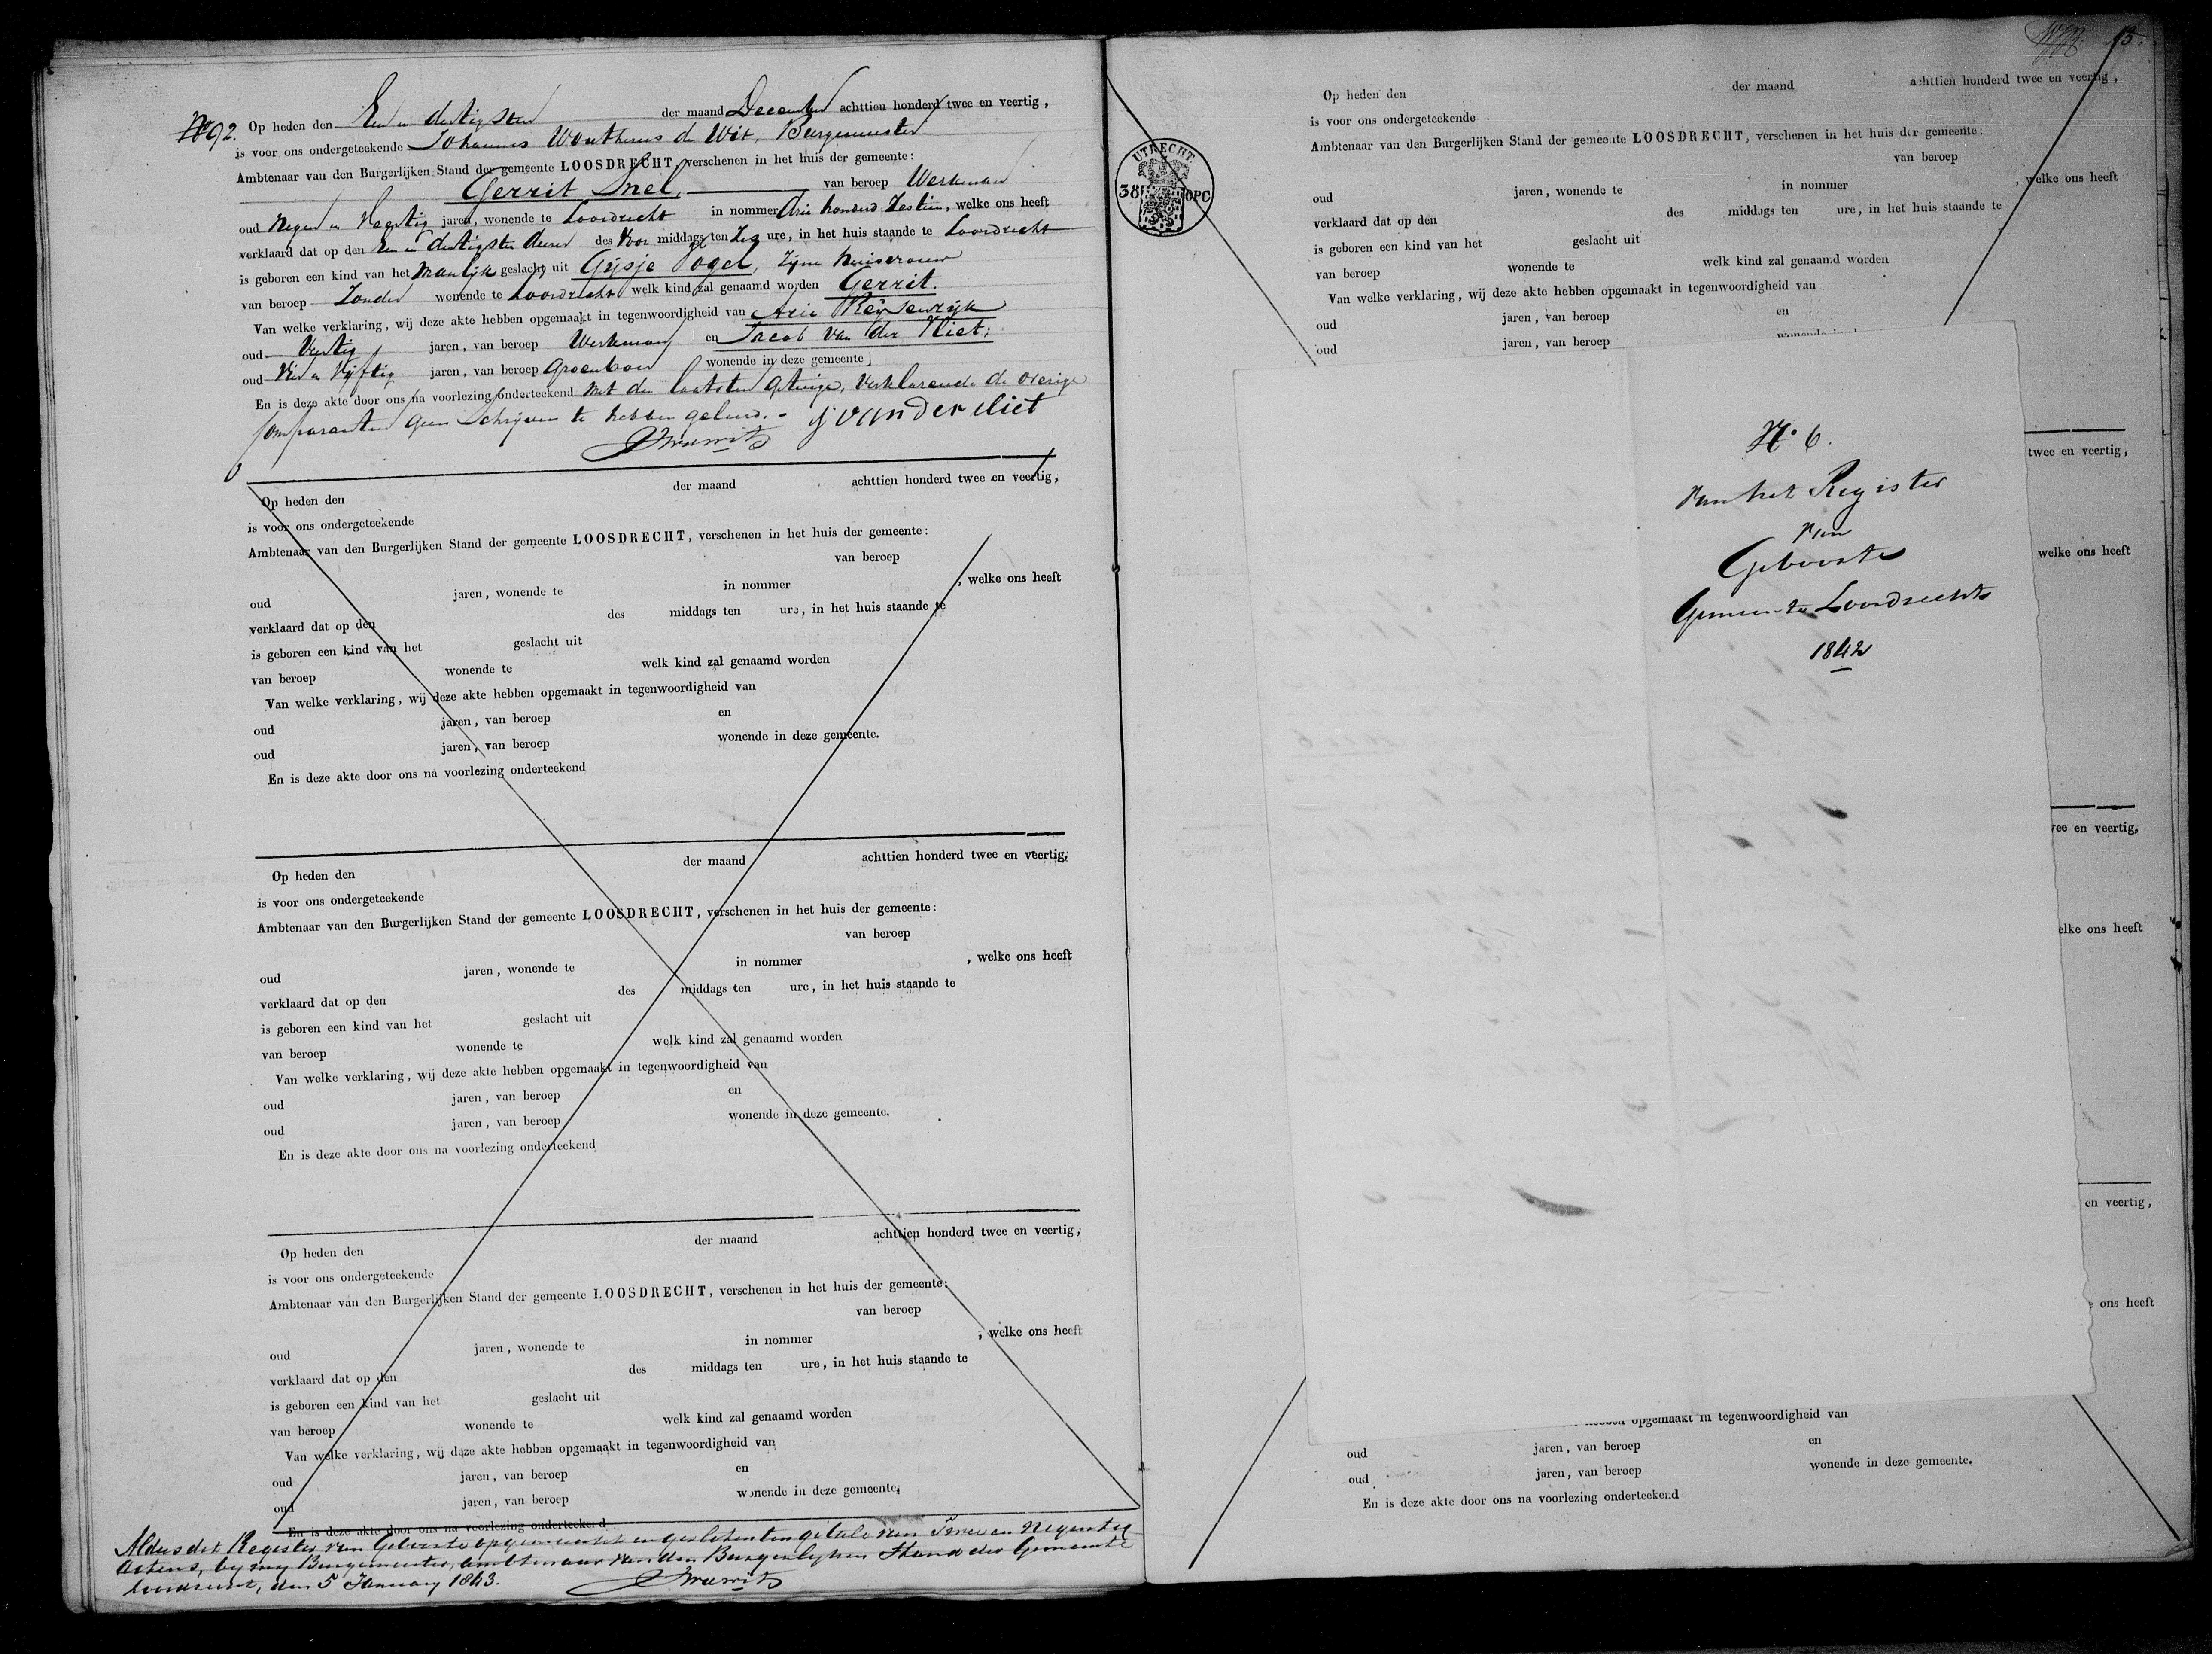 No 92. Op heden den Een en dertigsten der maand December achttien honderd twee en veertig,
is voor ons ondergeteekende Johannes Woutherus de Wit, Burgemeester
Ambtenaar van den Burgerlijken Stand der gemeente LOOSDRECHT, verschenen in het huis der gemeente:
Gerrit Snel, van beroep Werkman
oud Negen en Veertig jaren, wonende te Loosdrecht in nommer drie honderd Zestien, welke ons heeft
verklaard dat op den Een en dertigsten dezer des Voor middags ten Zes ure, in het huis staande te Loosdrecht
is geboren een kind van het Manlijk geslacht uit Gijsje Vogel, Zijne huisvrouw
van beroep Zonder wonende te Loosdrecht welk kind zal genaamd worden Gerrit.
Van welke verklaring, wij deze akte hebben opgemaakt in tegenwoordigheid van Arie
oud Veertig jaren, van beroep Werkman en Jacob van der Vliet;
oud Vier en Vijftig jaren, van beroep Groenboer wonende in deze gemeente
En is deze akte door ons na voorlezing onderteekend met den laatsten getuige, verklarende de overige
Comparanten geen Schrijven te hebben geleerd. - j van der vliet
Op heden den der maand achttien honderd twee en veertig,
is voor ons ondergeteekende
Ambtenaar van den Burgerlijken Stand der gemeente LOOSDRECHT, verschenen in het huis der gemeente:
van beroep
oud jaren, wonende te in nommer , welke ons heeft
verklaard dat op den des middags ten ure, in het huis staande te
is geboren een kind van het geslacht uit
van beroep wonende te welk kind zal genaamd worden
Van welke verklaring, wij deze akte hebben opgemaakt in tegenwoordigheid van
oud jaren, van beroep en
oud jaren, van beroep wonende in deze gemeente.
En is deze akte door ons na voorlezing onderteekend
Op heden den der maand achttien honderd twee en veertig,
is voor ons ondergeteekende
Ambtenaar van den Burgerlijken Stand der gemeente LOOSDRECHT, verschenen in het huis der gemeente:
van beroep
oud jaren, wonende te in nommer , welke ons heeft
verklaard dat op den des middags ten ure, in het huis staande te
is geboren een kind van het geslacht uit
van beroep wonende te welk kind zal genaamd worden
Van welke verklaring, wij deze akte hebben opgemaakt in tegenwoordigheid van
oud jaren, van beroep en
oud jaren, van beroep wonende in deze gemeente.
En is deze akte door ons na voorlezing onderteekend
Op heden den der maand achttien honderd twee en veertig,
is voor ons ondergeteekende
Ambtenaar van den Burgerlijken Stand der gemeente LOOSDRECHT, verschenen in het huis der gemeente:
van beroep
oud jaren, wonende te in nommer , welke ons heeft
verklaard dat op den des middags ten ure, in het huis staande te
is geboren een kind van het geslacht uit
van beroep wonende te welk kind zal genaamd worden
Van welke verklaring, wij deze akte hebben opgemaakt in tegenwoordigheid van
oud jaren, van beroep en
oud jaren, van beroep wonende in deze gemeente.
En is deze akte door ons na voorlezing onderteekend
Aldus dit Register van Geboorte opgemaakt en gesloten ten getale van Twee en Negentig
Actens, by my Burgemeester, ambtenaar van den Burgerlyken Stand der Gemeente
Loosdrecht, den 5 January 1843.
UTRECHT
38 OPC
13.
Op heden den der maand achttien honderd twee en veertig,
is voor ons ondergeteekende
Ambtenaar van den Burgerlijken Stand der gemeente LOOSDRECHT, verschenen in het huis der gemeente:
van beroep
oud jaren, wonende te in nommer , welke ons heeft
verklaard dat op den des middags ten ure, in het huis staande te
is geboren een kind van het geslacht uit
van beroep wonende te welk kind zal genaamd worden
Van welke verklaring, wij deze akte hebben opgemaakt in tegenwoordigheid van
oud jaren, van beroep en
oud jaren, van beroep
No 6.
van het Register
van
Geboorte
Gemeente Loosdrecht
1842
twee en veertig,
welke ons heeft
en veertig,
ons heeft
en veertig,
ons heeft
hebben opgemaakt in tegenwoordigheid van
oud jaren, van beroep en
oud jaren, van beroep wonende in deze gemeente.
En is deze akte door ons na voorlezing onderteekend